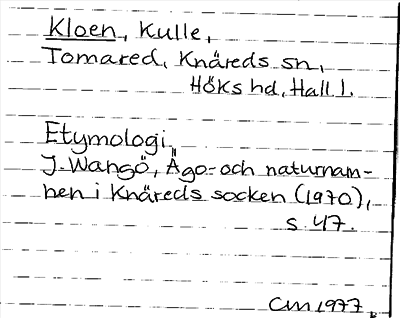 Kloen, Kulle,
Tomared, Knäreds sn,
Höks hd, Hall l.
Etymologi
J. Wangö, Ägo- och naturnam-
nen i Knäreds socken (1970),
s. 47.
CM 1977